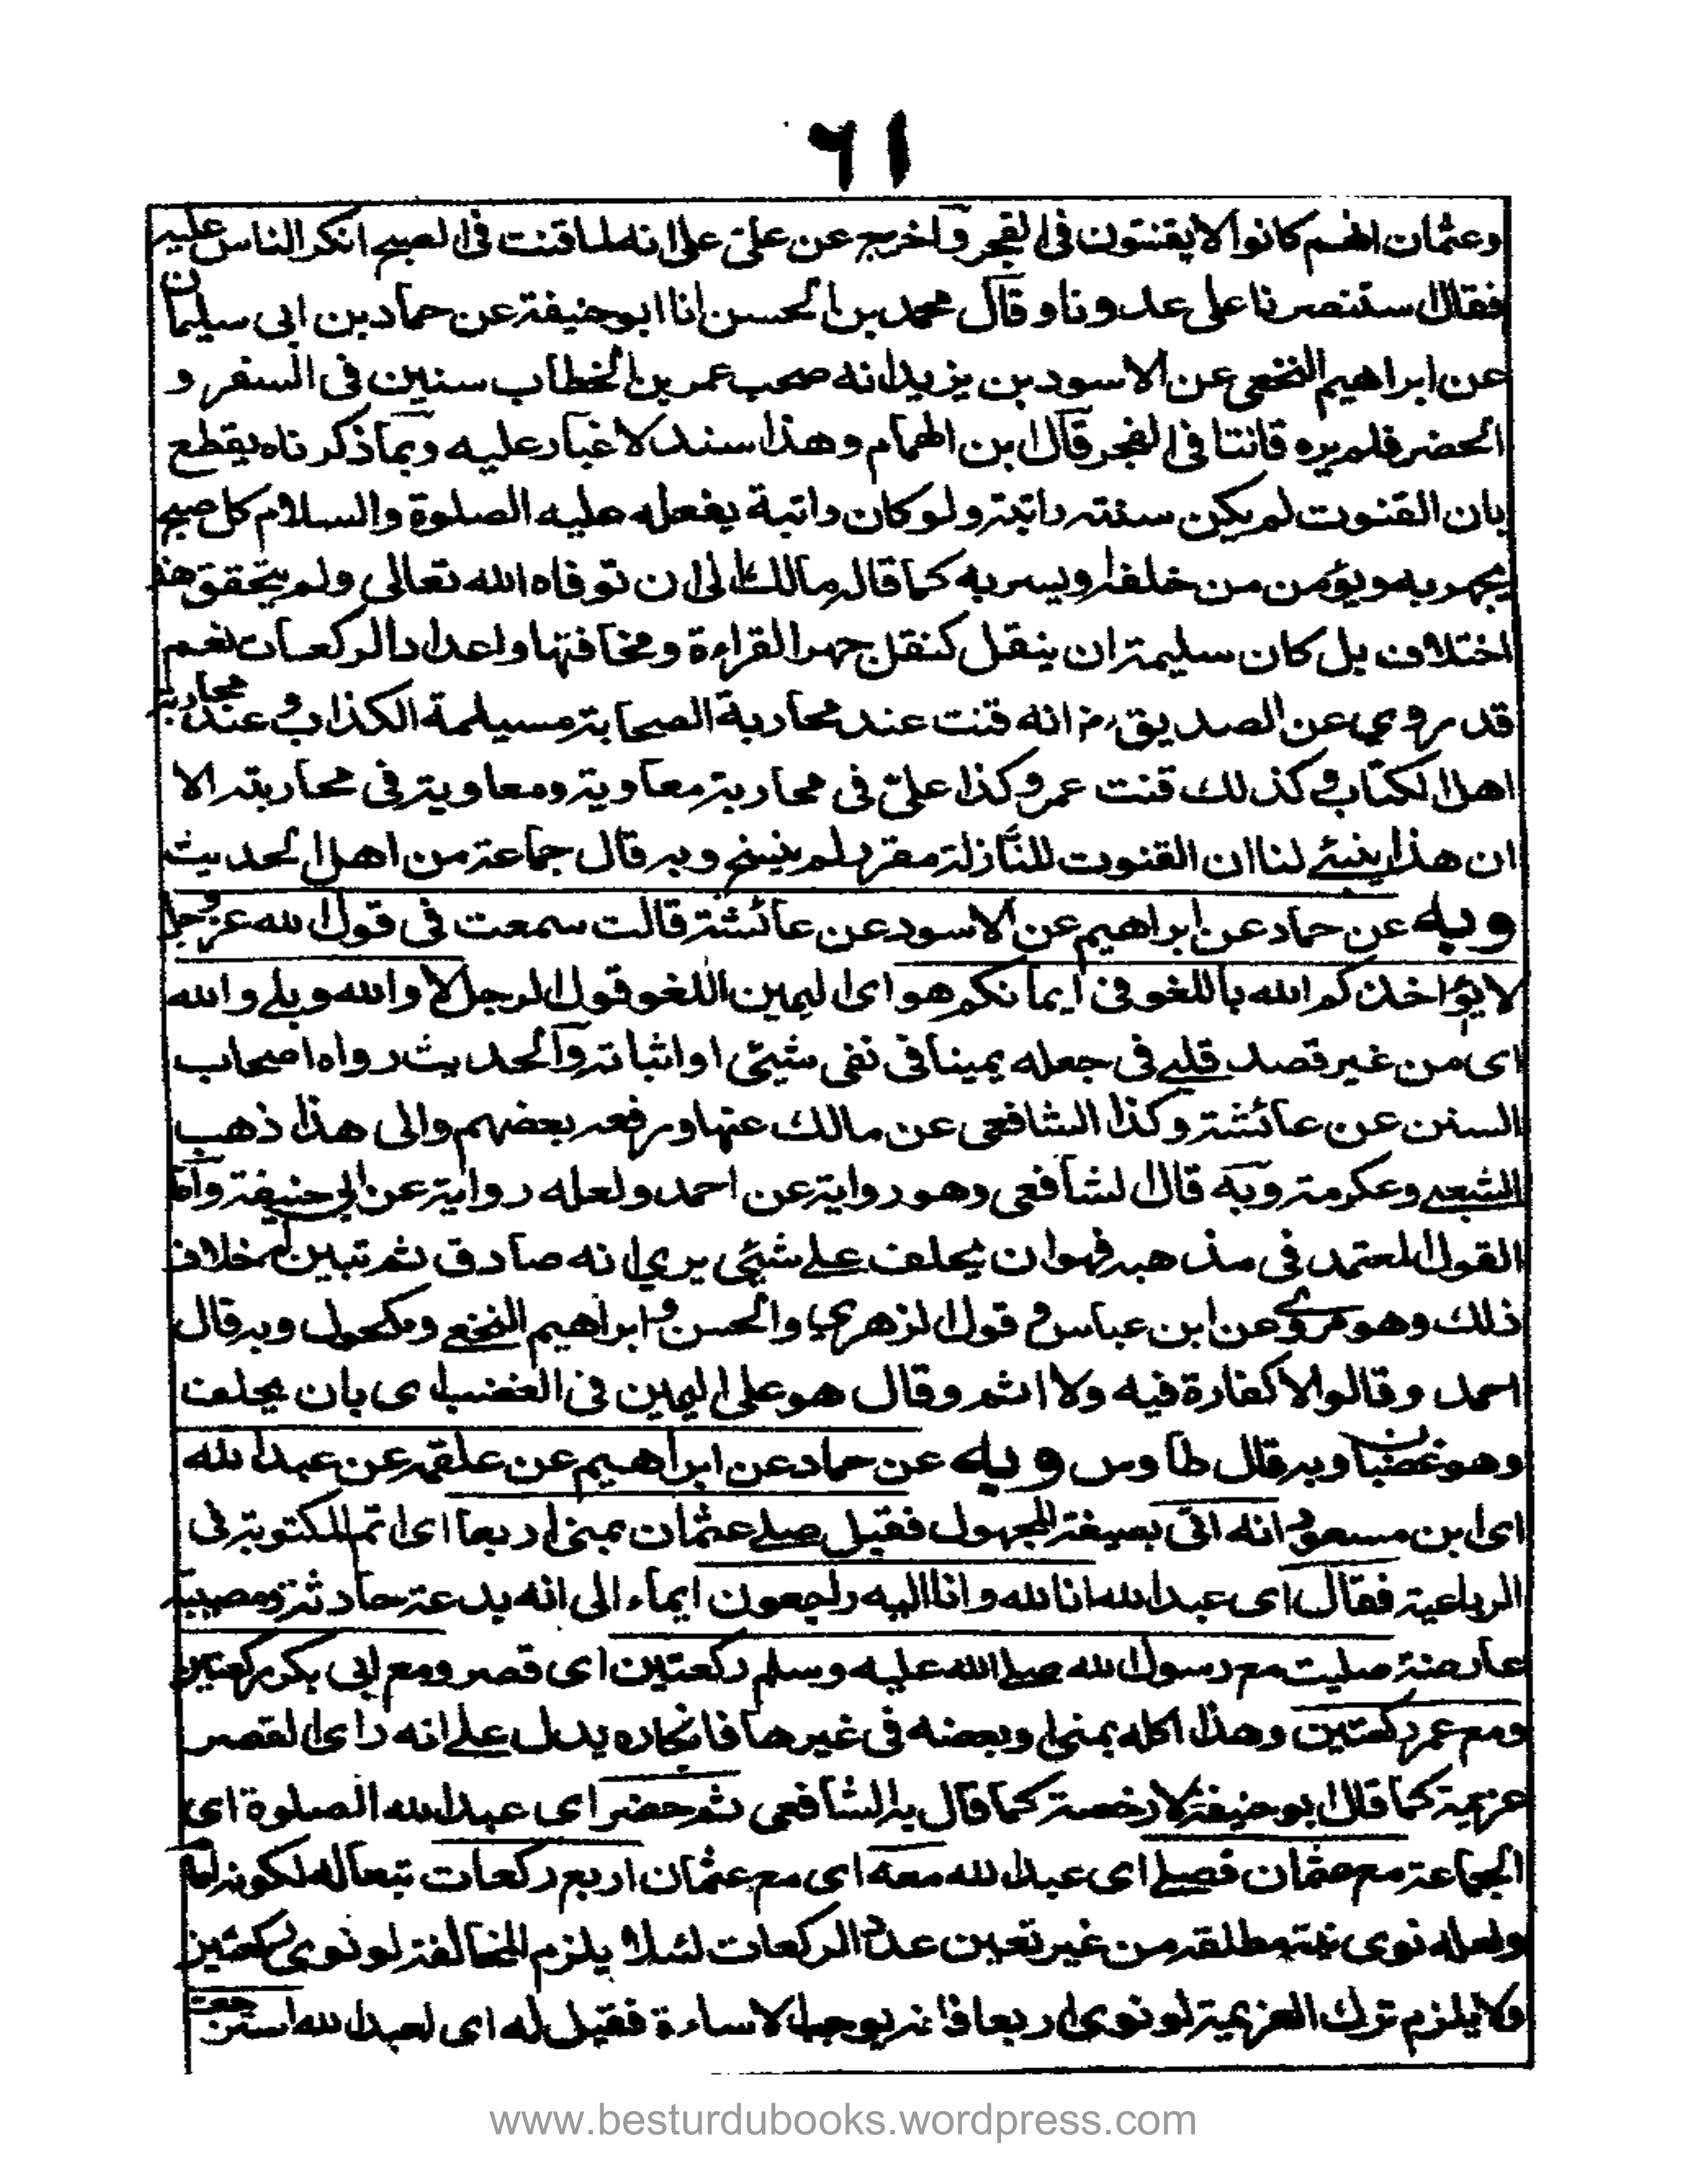 ٦١
وعثمان انهم كانوا لا يقنتون فى الفجر وأخرج عن على على انه لما قنت فى الصبح انكر الناس عليه
فقال استنصرنا على عدونا وقال محمد بن الحسن انا ابو حنيفة عن حماد بن ابى سليمان
عن ابراهيم النخعى عن الاسود بن يزيد انه صحب عمر بن الخطاب سنين فى السفر و
الحضر فلم يره قانتا فى الفجر قال ابن الهمام وهذا سند لا غبار عليه وبما ذكرناه يقطع
بان القنوت لم يكن سنته راتبة ولو كان راتبة يفعله عليه الصلوة والسلام كل صبح
يجهر به ويؤمن من خلفه او يسر به كما قال مالك الى ان توفاه الله تعالى ولم يتحقق هذا
اختلاف بل كان سليمة ان ينقل كنقل جهر القراءة ومخافتها واعداد الركعات نعم
قد روي عن الصديق رض انه قنت عند محاربة الصحابة مسيلمة الكذاب وعند محاربة
اهل الكتاب وكذلك قنت عمر وكذا على فى محاربة معاوية ومعاوية فى محاربته الا
ان هذا ينبئ لنا ان القنوت للنازلة مقرر لم ينسخ وبه قال جماعة من اهل الحديث
وبه عن حماد عن ابراهيم عن الاسود عن عائشة قالت سمعت فى قول الله عز وجل
لا يؤاخذكم الله باللغو فى ايمانكم هو اى اليمين اللغو قول الرجل لا والله وبلى والله
اى من غير قصد قلبى فى جعله يمينا فى نفى شيئى او اثباته والحديث رواه اصحاب
السنن عن عائشة وكذا الشافعى عن مالك عنها ورفعه بعضهم والى هذا ذهب
الشعبى وعكرمة وبه قال الشافعى وهو رواية عن احمد ولعله رواية عن ابى حنيفة واما
القول المعتمد فى مذهبه فهو ان يحلف على شيئى يرى انه صادق ثم تبين له خلاف
ذلك وهو مروى عن ابن عباس و قول الزهري والحسن و ابراهيم النخعى ومكحول وبه قال
احمد وقالوا لا كفارة فيه ولا اثم وقال هو على اليمين فى الغضب اى بان يحلف
وهو غضبان وبه قال طاوس وبه عن حماد عن ابراهيم عن علقمه عن عبد الله
اى ابن مسعود انه اتى بصيغة المجهول فقيل صلى عثمان بمنى اربعا اى اتم المكتوبة فى
الرباعية فقال اى عبد الله انا لله وانا اليه راجعون ايماء الى انه بدعة حادثة ومصيبة
عارضة صليت مع رسول الله صلى الله عليه وسلم ركعتين اى قصر ومع ابى بكر ركعتين
ومع عمر ركعتين وهذا كله بمنى وبعضه فى غيرها فانكاره يدل على انه راى القصر
عزيمة كما قال ابو حنيفة لا رخصة كما قال به الشافعى ثم حضر اى عبد الله الصلوة اى
الجماعة مع عثمان فصلى اى عبد الله معه اى مع عثمان اربع ركعات تبعا له لكونه
ولعله نوى نية مطلقه من غير تعين عدد الركعات لئلا يلزم المخالفة لو نوى ركعتين
ولا يلزم ترك العزيمة لو نوى اربعا فانه يوجب الاساءة فقيل له اى لعبد الله استرجعت
www.besturdubooks.wordpress.com